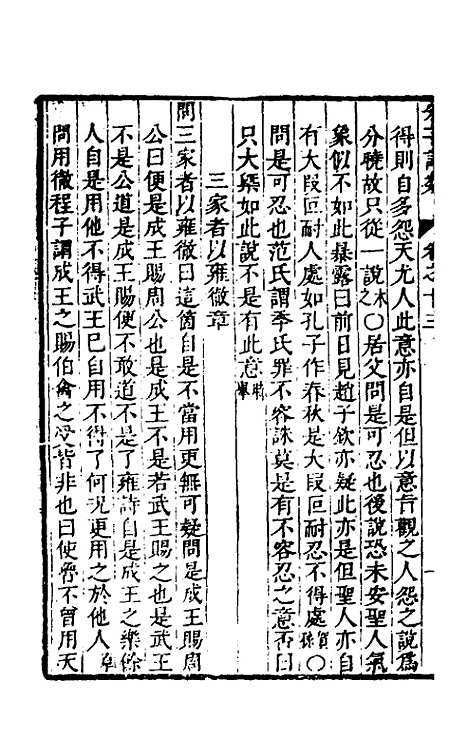 得則自多怨天尤人此意亦自是但以意旨觀之人怨之說為
分曉故只從一說木之〇居父問是可忍也後說恐未安聖人氣
象似不如此暴露曰前日見趙子欽亦疑此亦是但聖人亦自
有大段叵耐人處如孔子作春秋是大段叵耐忍不得處賀孫〇
問是可忍也范氏謂季氏罪不容誅莫是有不容忍之意否曰
只大槩如此說不是有此意
三家者以雍徹章
問三家者以雍徹曰這箇自是不當用更無可疑問是成王賜周
公曰便是成王賜周公也是成王不是若武王賜之也是武王
不是公道是成王賜便不敢道不是了雍詩自是武王之樂餘
人自是用他不得武王已自用不得了何況更用之於他人卓
問用徹程子謂成王之賜伯禽之受皆非也曰使魯不曾用天